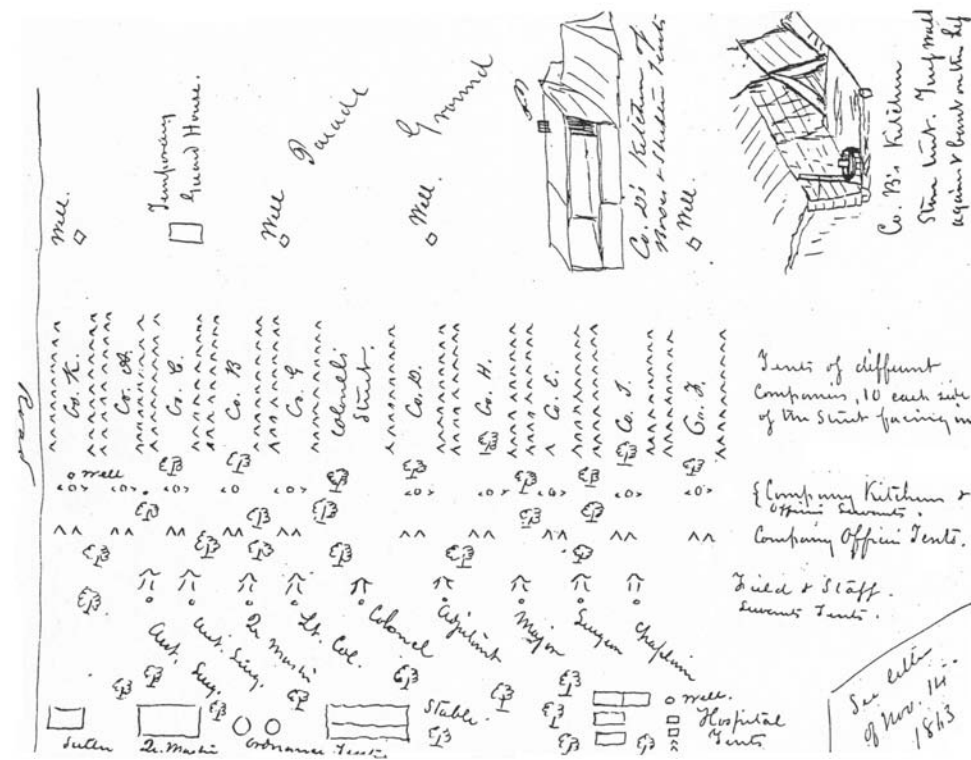 Well.
Temporary
Guard House.
Well
Parade
Ground
Well.
Co. D's Kitchen of
Boards & Shelter Tents
Well.
Co. B's Kitchen
Stone
against bank on the
Road
Co. K.
Co. A.
Co. C.
Co. B
Co. G
Colonel's
Street.
Co. D.
Co. H.
Co. E.
Co. I
Co. F.
Tents of different
Companies, 10 each side
of the Street facing in
Well
Company Kitchens &
Officers Servants.
Company Officers Tents.
Field & Staff.
Servants Tents.
Asst. Surg.
Asst. Surg.
Qr. Master
Lt. Col.
Colonel
Adjutant
Major
Surgeon
Chaplain
Sutler
Qr. Master
Ordnance Tents
Stable.
Well.
Hospital
Tents
See letter
of Nov. 14.
1863